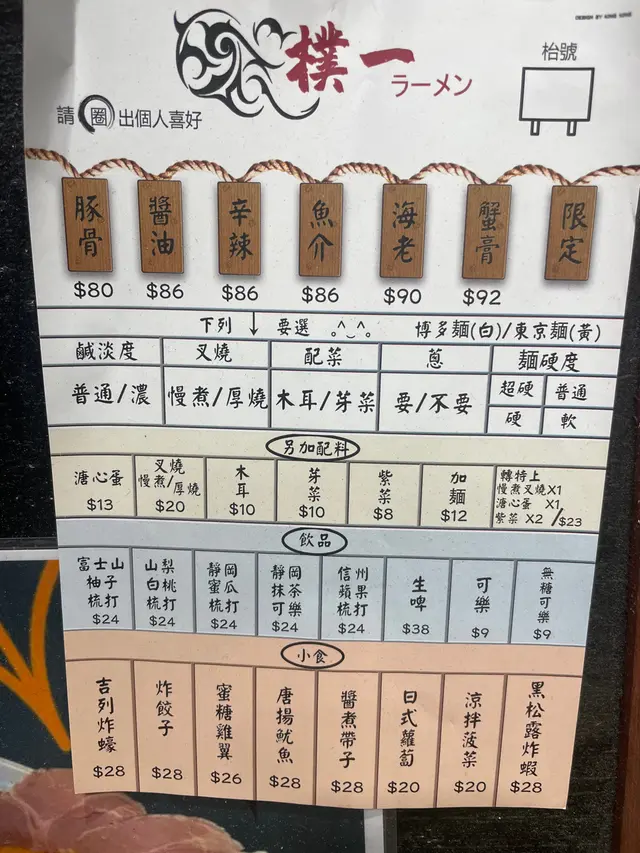 DESIGN BY KING KING
樸一
ラーメン
枱號
請圈出個人喜好
豚骨 醬油 辛辣 魚介 海老 蟹膏 限定
$80 $86 $86 $86 $90 $92
下列↓要選 。^‿^。 博多麵(白)/東京麵(黃)
鹹淡度 叉燒 配菜 蔥 麵硬度
普通/濃 慢煮/厚燒 木耳/芽菜 要/不要 超硬 普通
硬 軟
另加配料
溏心蛋 $13
叉燒 慢煮/厚燒 $20
木耳 $10
芽菜 $10
紫菜 $8
加麵 $12
轉特上
慢煮叉燒X1
溏心蛋 X1
紫菜 X2 /$23
飲品
富士山柚子梳打 $24
山梨白桃梳打 $24
靜岡蜜瓜梳打 $24
靜岡抹茶可樂 $24
信州蘋果梳打 $24
生啤 $38
可樂 $9
無糖可樂 $9
小食
吉列炸蠔 $28
炸餃子 $28
蜜糖雞翼 $26
唐揚魷魚 $28
醬煮帶子 $28
日式蘿蔔 $20
涼拌菠菜 $20
黑松露炸蝦 $28